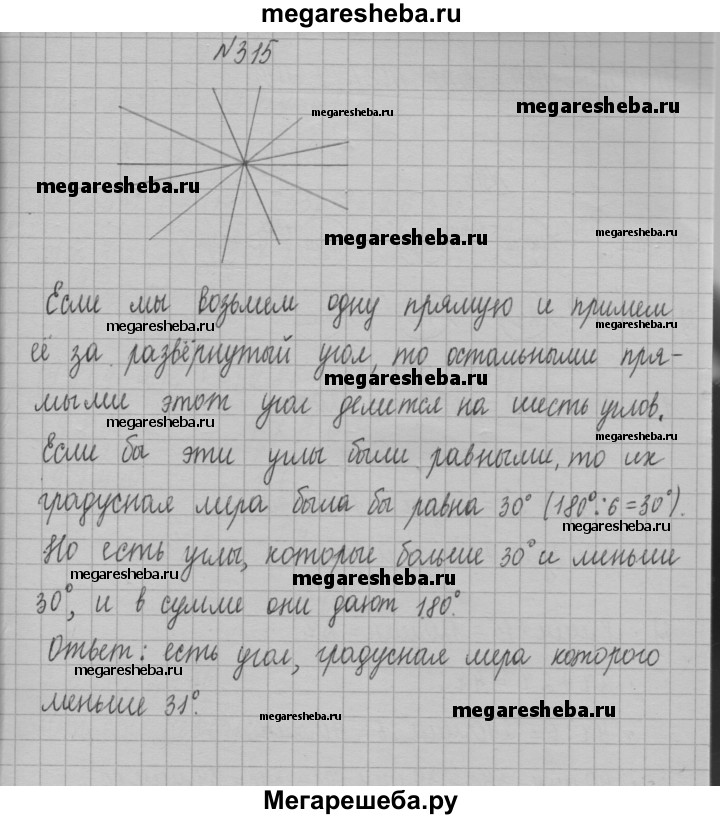 megaresheba.ru
№315
megaresheba.ru
megaresheba.ru
megaresheba.ru
megaresheba.ru
megaresheba.ru
Если мы возьмем одну прямую и примем
megaresheba.ru
megaresheba.ru
её за развёрнутый угол, то остальными пря-
megaresheba.ru
мыми этот угол делится на шесть углов.
megaresheba.ru
megaresheba.ru
Если бы эти углы были равными, то их
градусная мера была бы равна 30° (180°:6=30°).
megaresheba.ru
Но есть углы, которые больше 30° и меньше
megaresheba.ru
megaresheba.ru
30°, и в сумме они дают 180°.
Ответ: есть угол, градусная мера которого
megaresheba.ru
меньше 31°.
megaresheba.ru
megaresheba.ru
Мегарешеба.ру